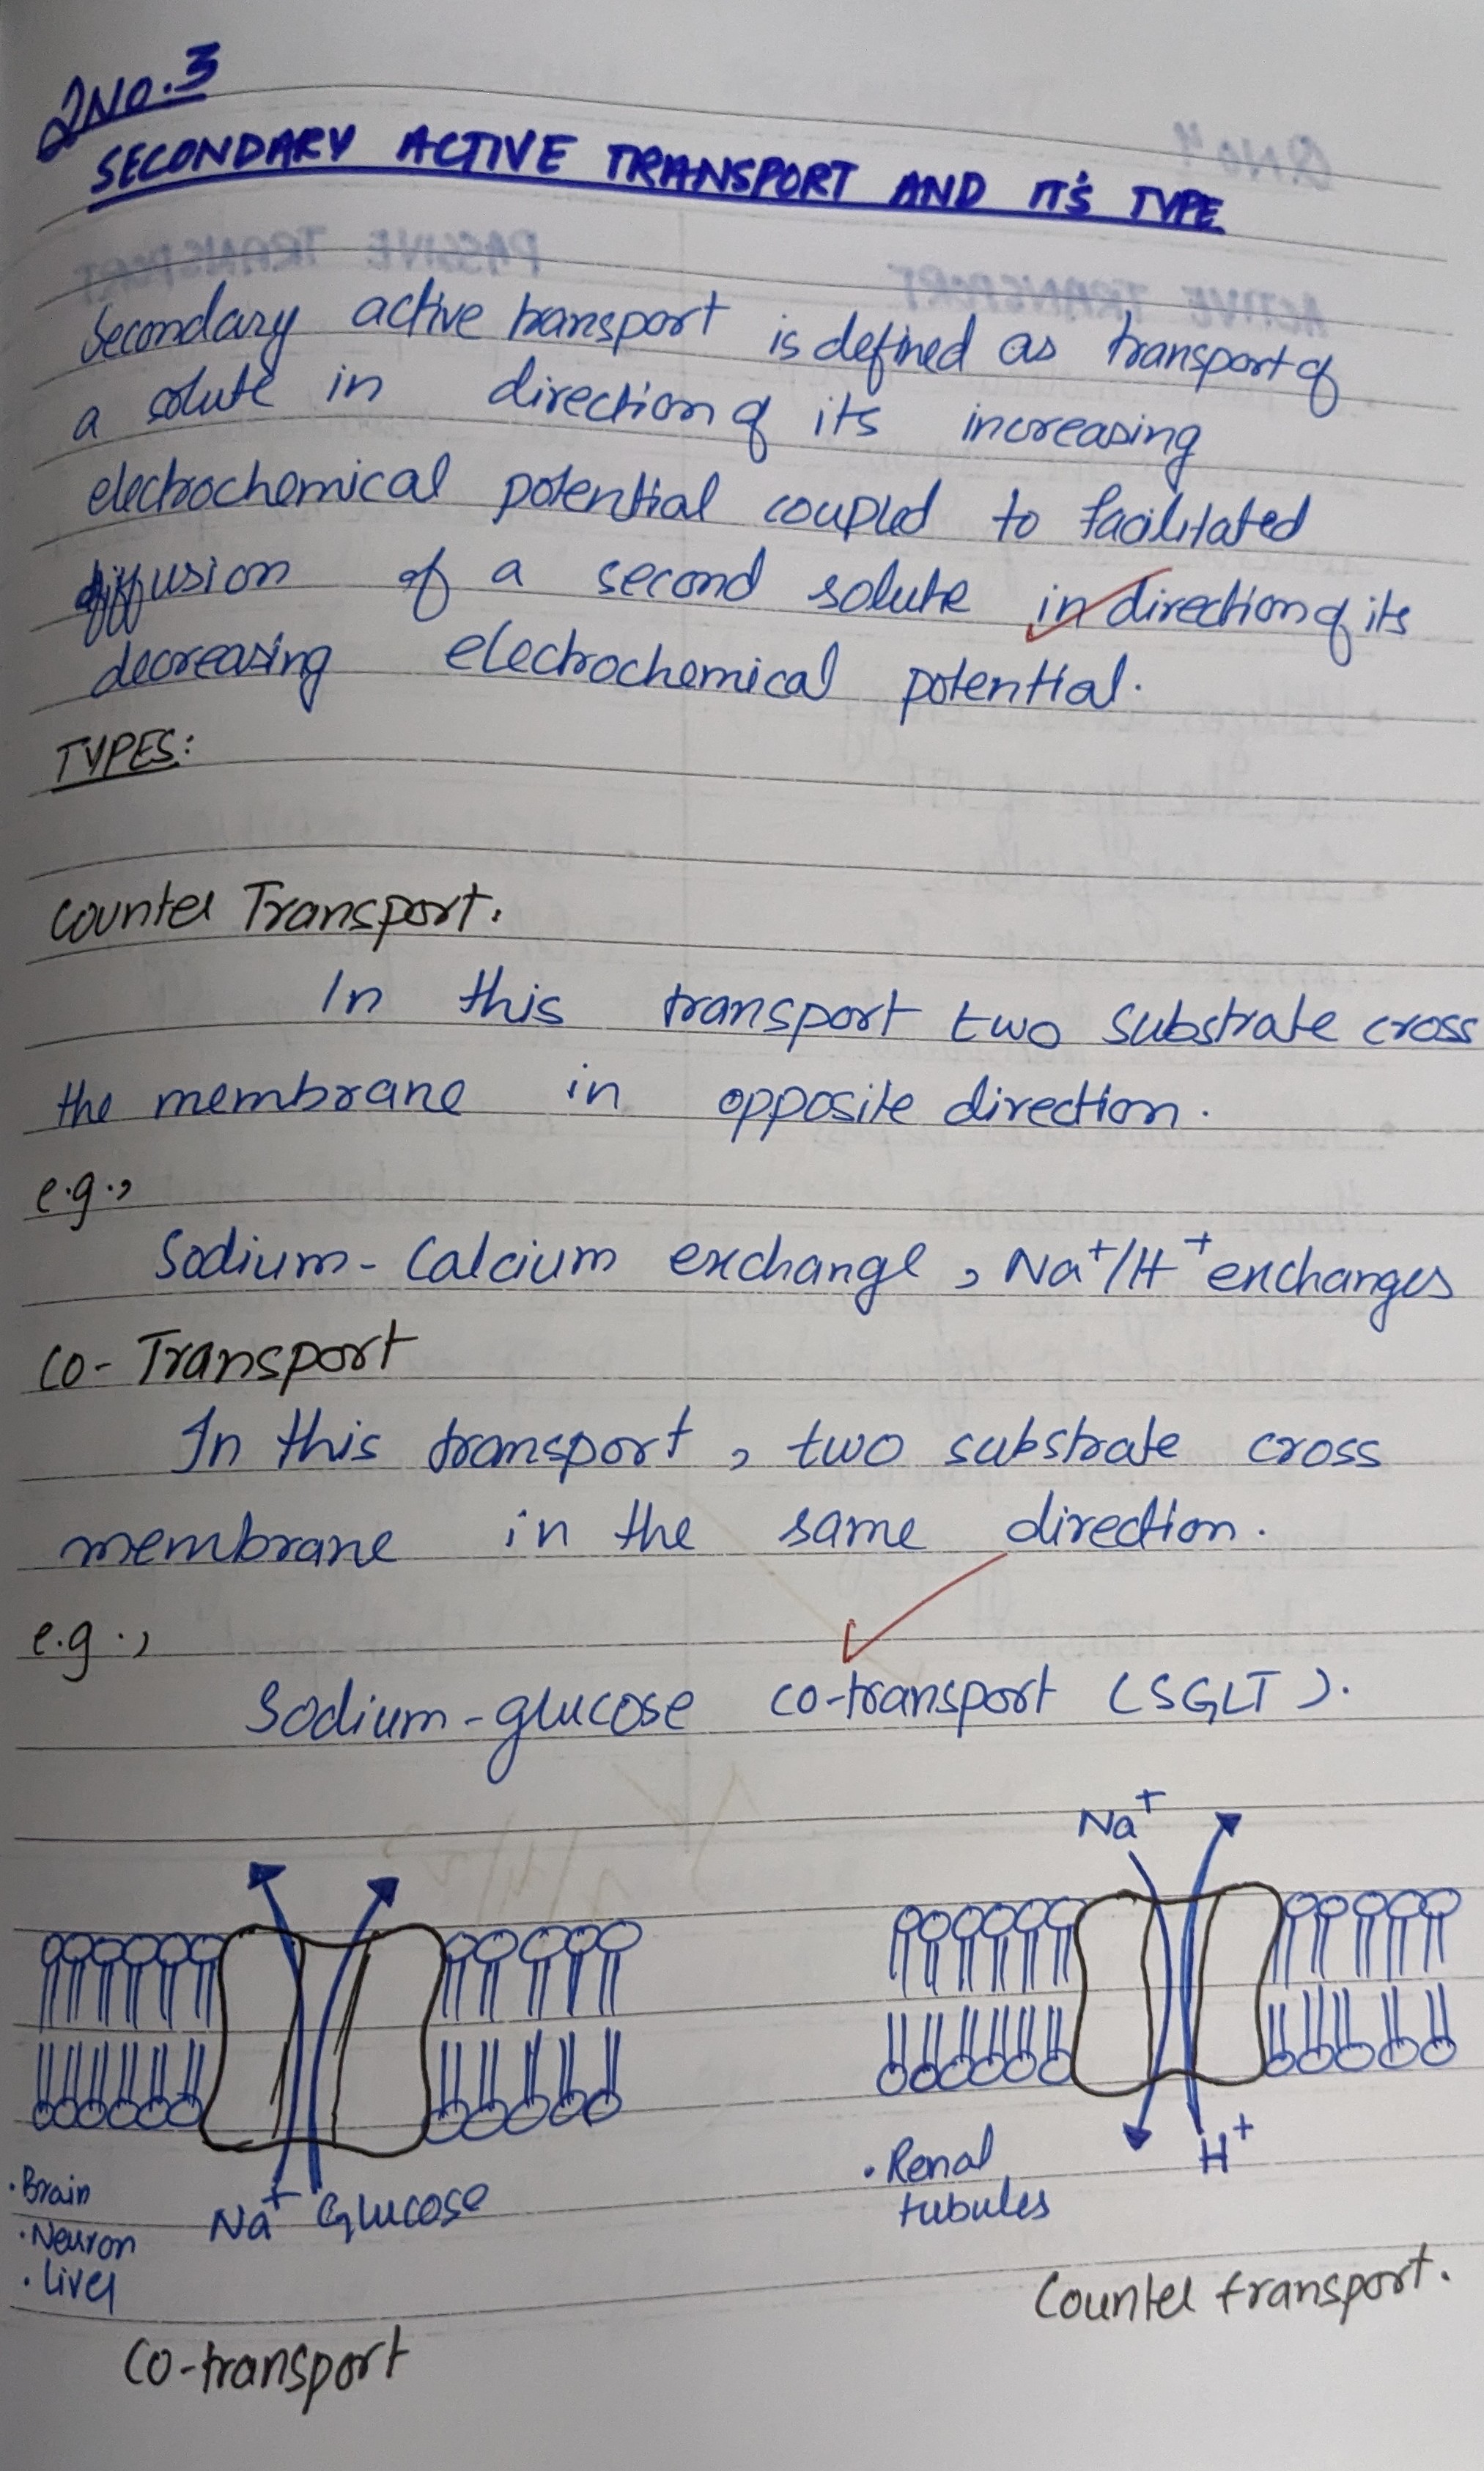 QNo.3
SECONDARY ACTIVE TRANSPORT AND IT'S TYPE
Secondary active transport is defined as transport of
a solute in direction of its increasing
electrochemical potential coupled to facilitated
diffusion of a second solute in direction of its
decreasing electrochemical potential.
TYPES:
Counter Transport.
In this transport two substrate cross
the membrane in opposite direction.
e.g.,
Sodium-Calcium exchange, Na⁺/H⁺ exchanges
Co-Transport
In this transport, two substrate cross
membrane in the same direction.
e.g.,
Sodium-glucose co-transport (SGLT).
Na⁺
H⁺
• Renal
tubules
Na⁺ Glucose
• Brain
• Neuron
• Liver
Counter transport.
Co-transport
QNo 4
PASSIVE TRANSPORT
ACTIVE TRANSPORT